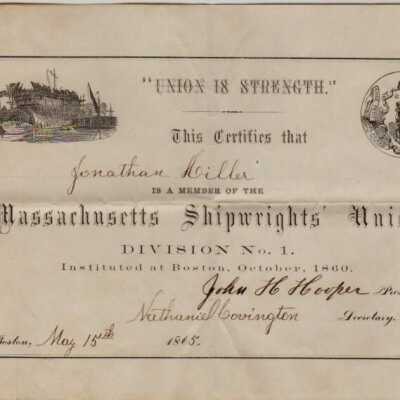 "UNION IS STRENGTH."
This Certifies that
Jonathan Miller
IS A MEMBER OF THE
Massachusetts Shipwrights' Unio
DIVISION No. 1.
Instituted at Boston, October, 1860.
John H Hooper Pre
Nathaniel Covington Secretary.
Boston, May 15th 1865.